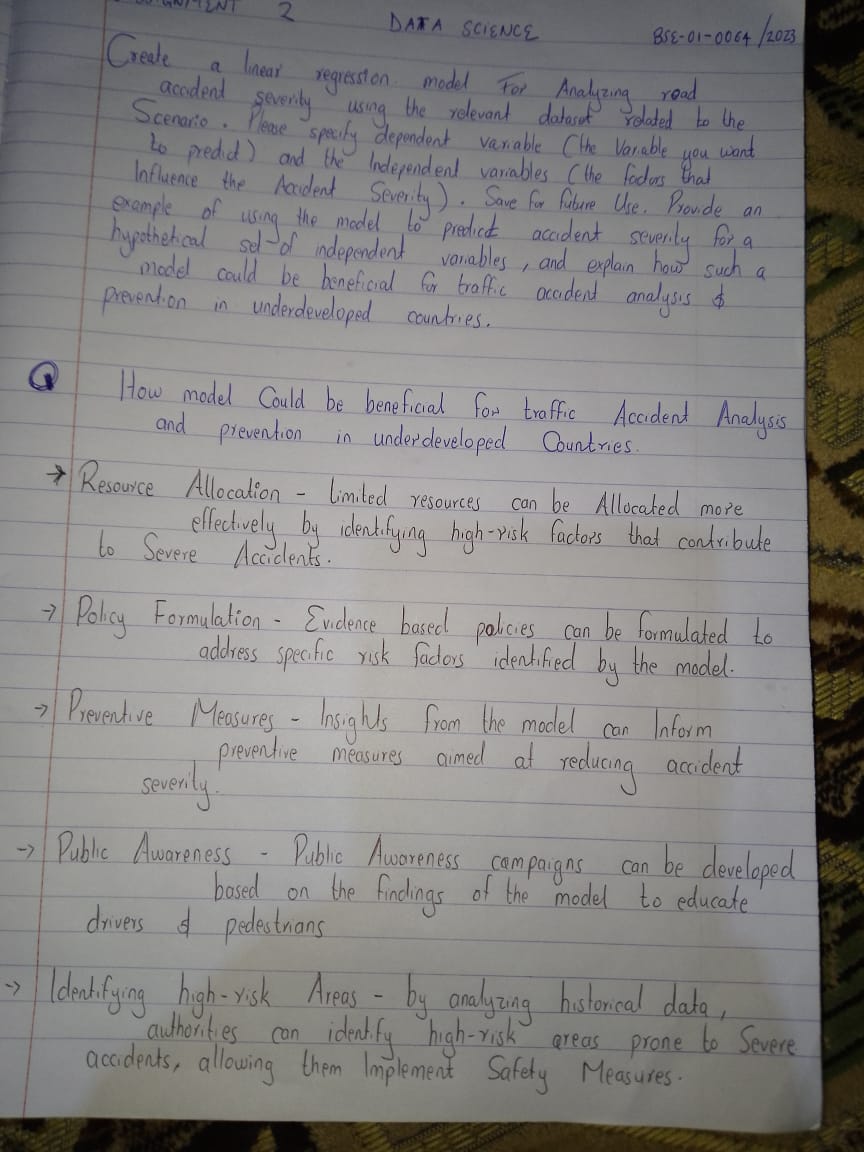 2
DATA SCIENCE
BSE-01-0064/2023
Create a linear regression model For Analyzing road
accident severity using the relevant dataset related to the
Scenario. Please specify dependent variable (the Variable you want
to predict) and the Independent variables (the factors that
Influence the Accident Severity). Save for future Use. Provide an
example of using the model to predict accident severity for a
hypothetical set of independent variables, and explain how such a
model could be beneficial for traffic accident analysis &
prevention in underdeveloped countries.
Q How model Could be beneficial for traffic Accident Analysis
and prevention in underdeveloped Countries.
→ Resource Allocation - limited resources can be Allocated more
effectively by identifying high-risk factors that contribute
to Severe Accidents.
→ Policy Formulation - Evidence based policies can be formulated to
address specific risk factors identified by the model.
→ Preventive Measures - Insights from the model can Inform
preventive measures aimed at reducing accident
severity.
→ Public Awareness - Public Awareness campaigns can be developed
based on the findings of the model to educate
drivers & pedestrians
→ Identifying high-risk Areas - by analyzing historical data,
authorities can identify high-risk areas prone to Severe
accidents, allowing them Implement Safety Measures.